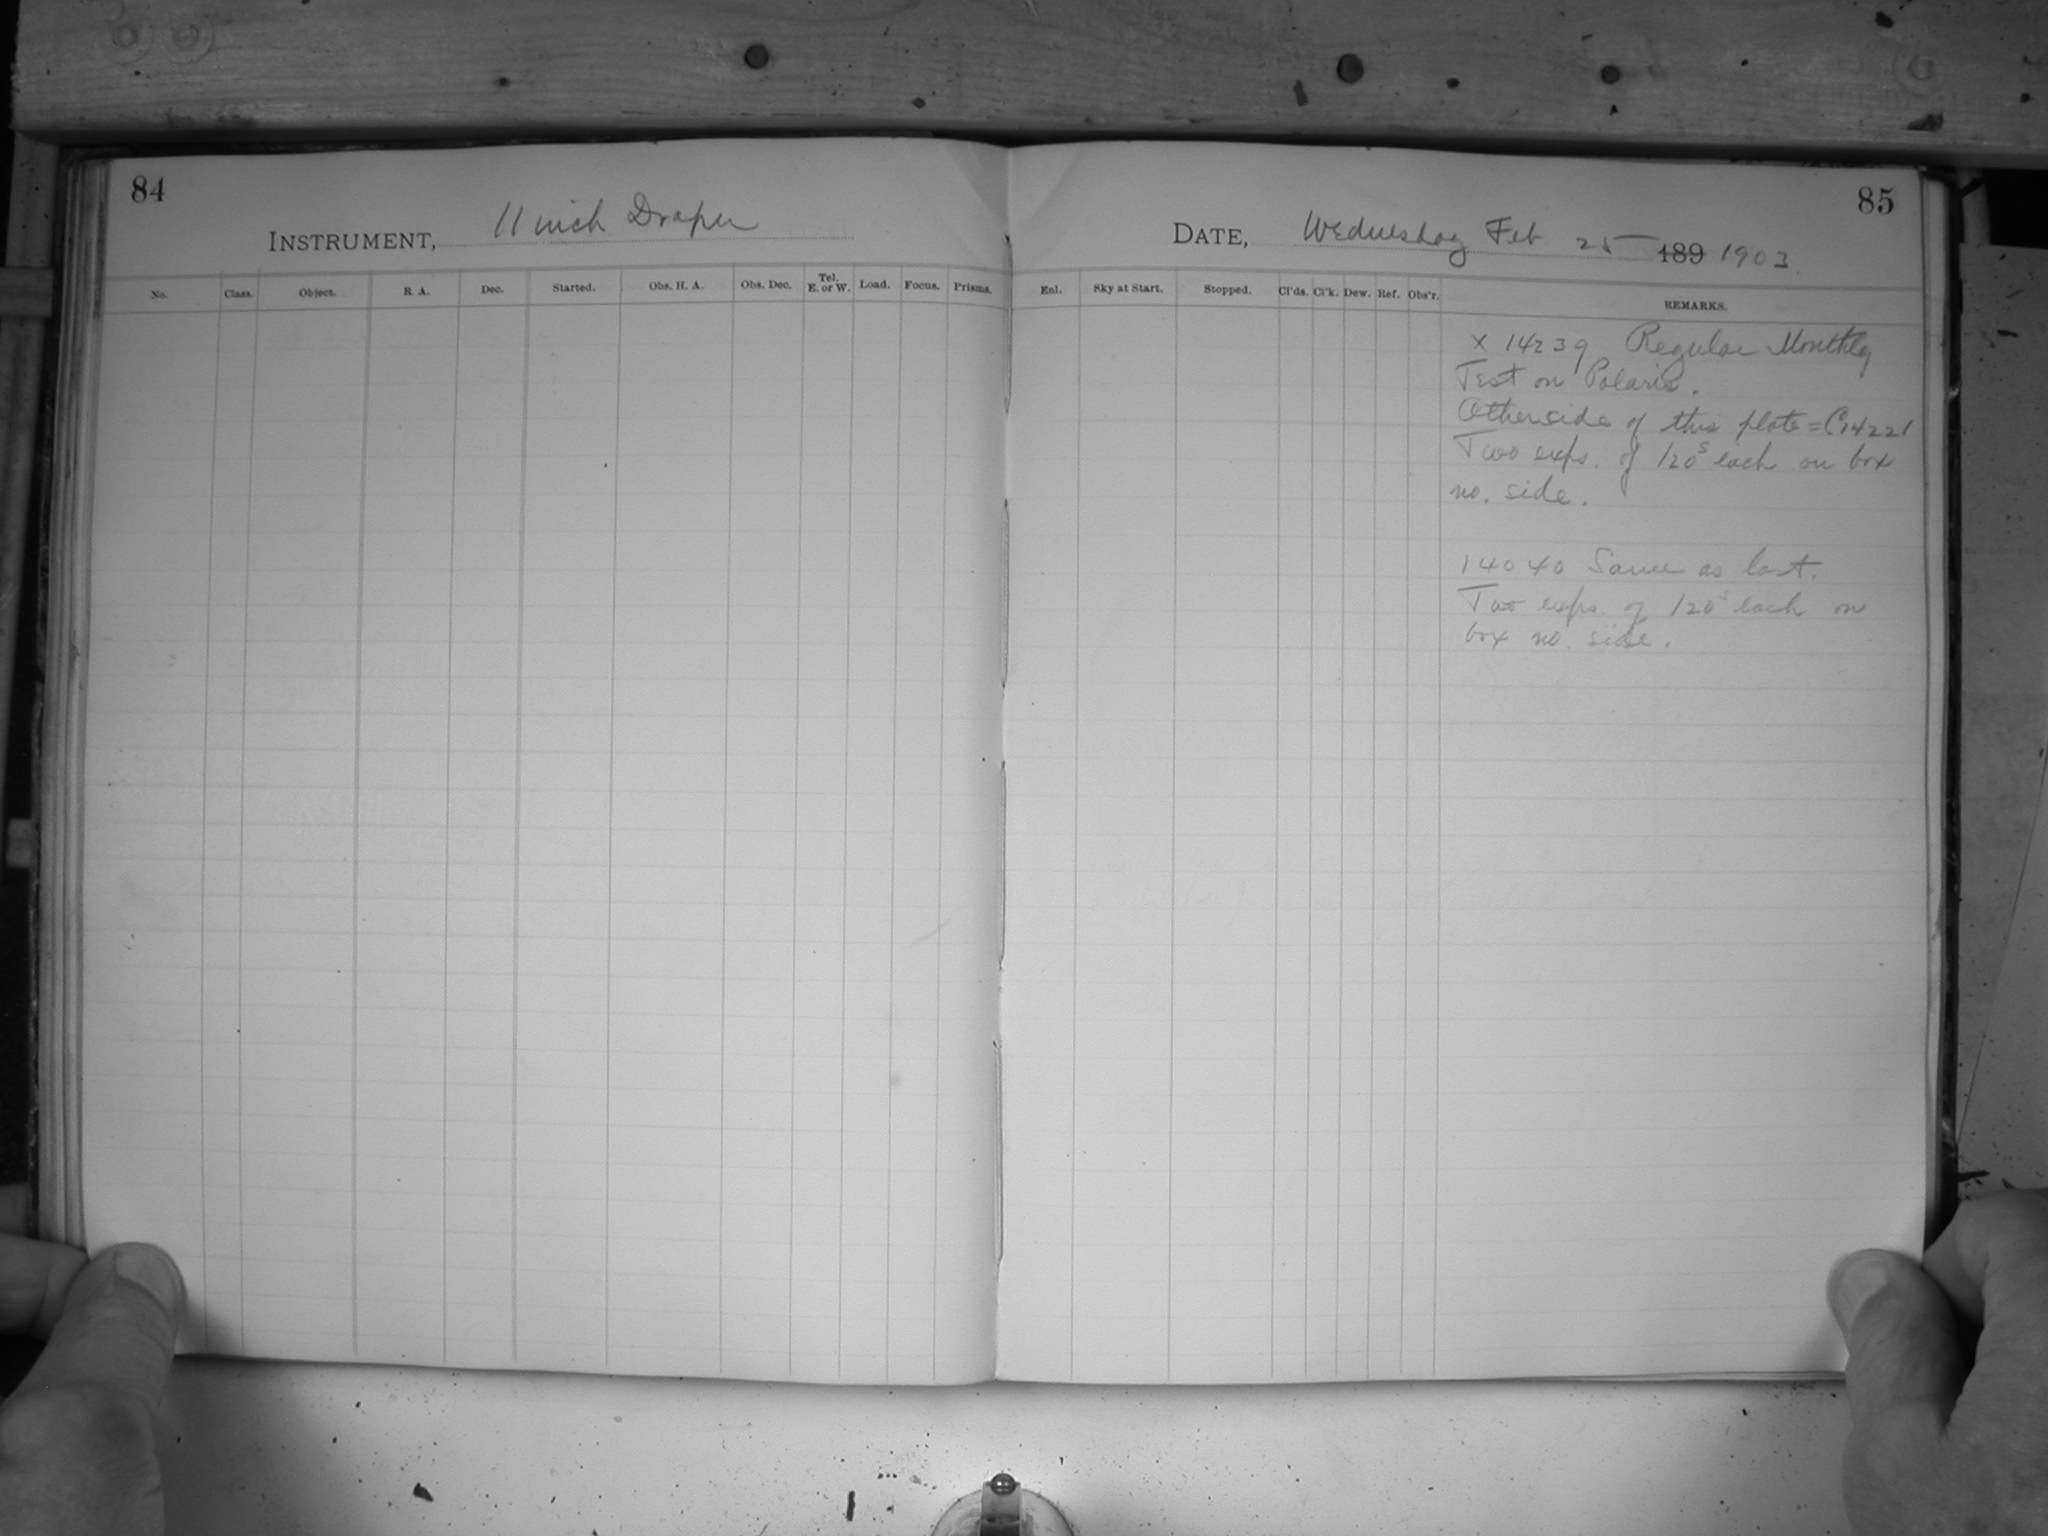 84
INSTRUMENT, 11 inch Draper
No. Class. Object. R. A. Dec. Started. Obs. H. A. Obs. Dec. Tel. E. or W. Load. Focus. Prisms.
85
DATE, Wednesday Feb. 25 189 1903
Enl. Sky at Start. Stopped. Cl'ds. Cl'k. Dew. Ref. Obs'r. REMARKS.
X 14239 Regular Monthly
Test on Polaris.
Otherside of this plate = C14221
Two exps. of 120s each on box
no. side.
14040 Same as last.
Two exps. of 120s each on
box no. side.